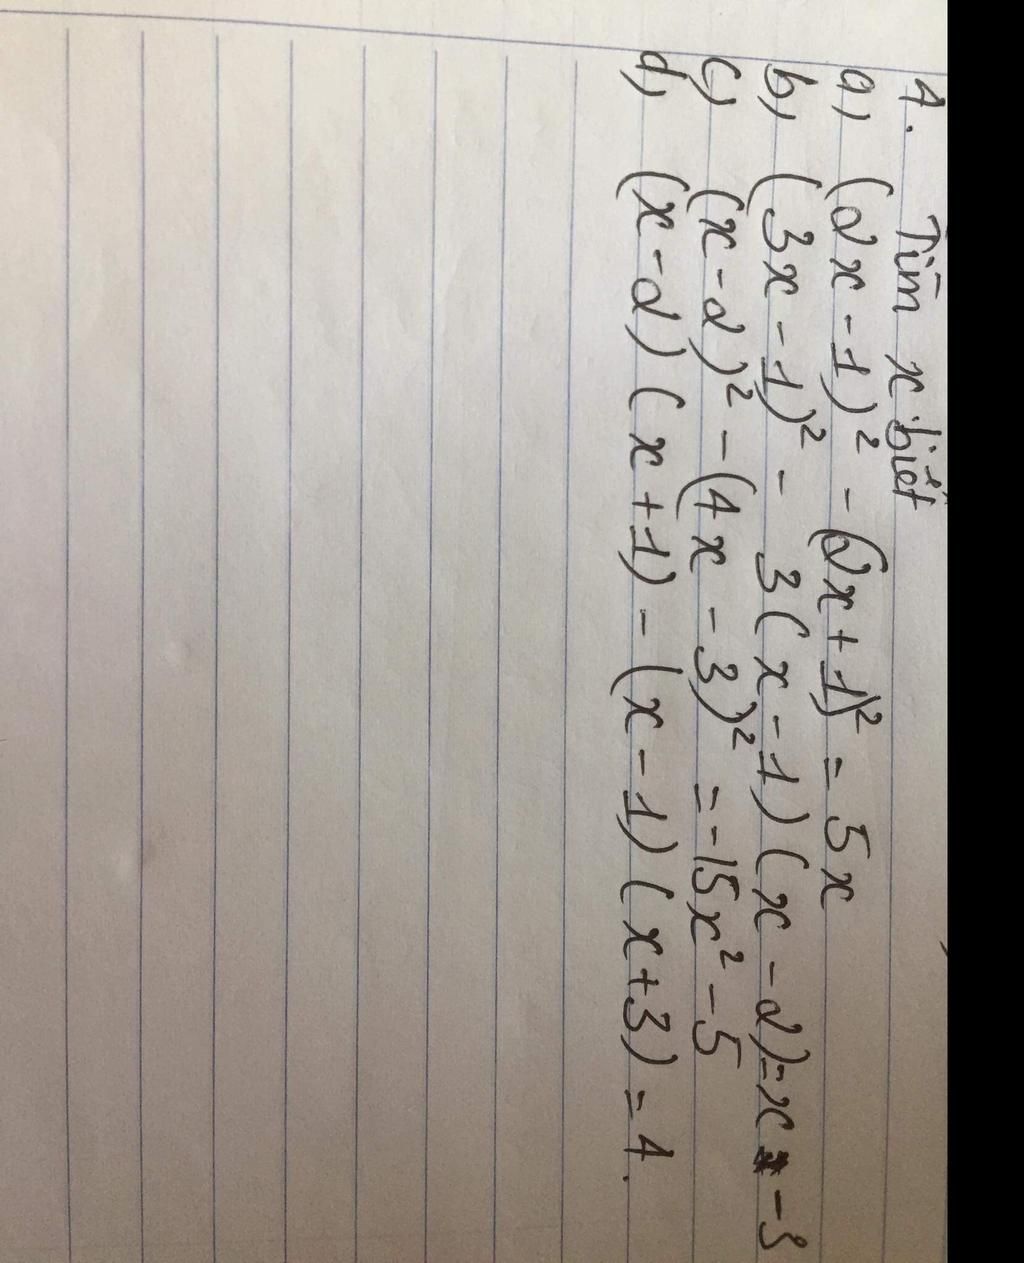 4. Tìm x biết
a) (2x-1)² - (2x+1)² = 5x
b) (3x-1)² - 3(x-1)(x-2) = x-3
c) (x-2)² - (4x-3)² = -15x² - 5
d) (x-2)(x+1) - (x-1)(x+3) = 4.